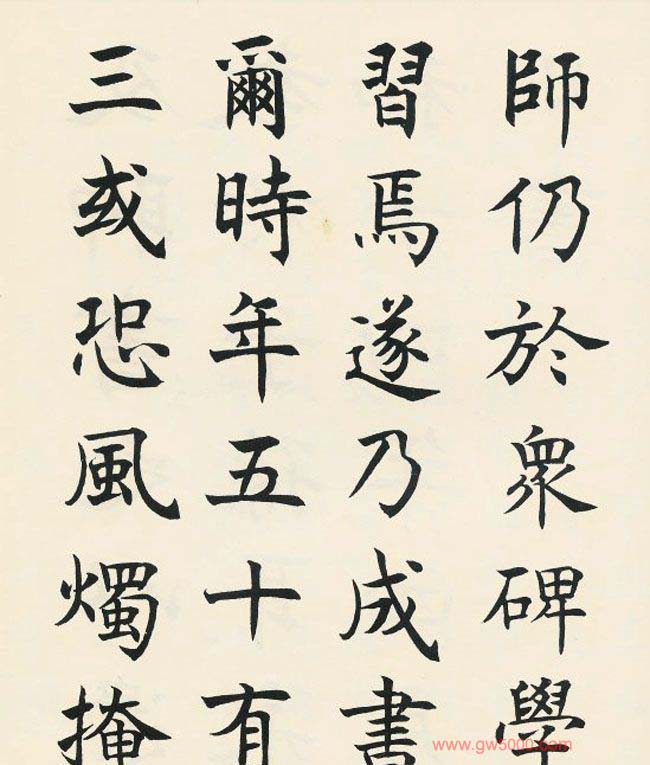 師仍於衆碑學
習焉遂乃成書
爾時年五十有
三或恐風燭掩
www.gw5000.com